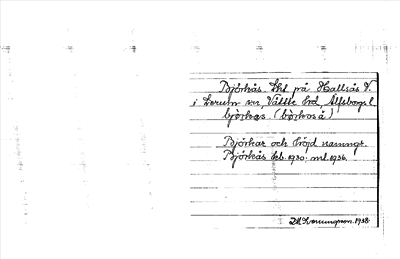 Björkås. Lht på Hallsås V.
i Lerum sn, Vättle hd, Älfsborgs l.
björkås (björkoså)
Björkar och höjd namngt.
Björkås hb. 1930; ml. 1936.
1938